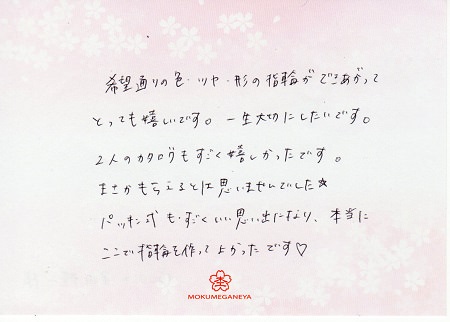 希望通りの色・ツヤ・形の指輪ができあがって
とっても嬉しいです。一生大切にしたいです。
2人のカタログもすごく嬉しかったです。
まさかもらえるとは思いませんでした★
パッキン式も・すごくいい思い出になり、本当に
ここで指輪を作ってよかったです♡
杢
MOKUMEGANEYA